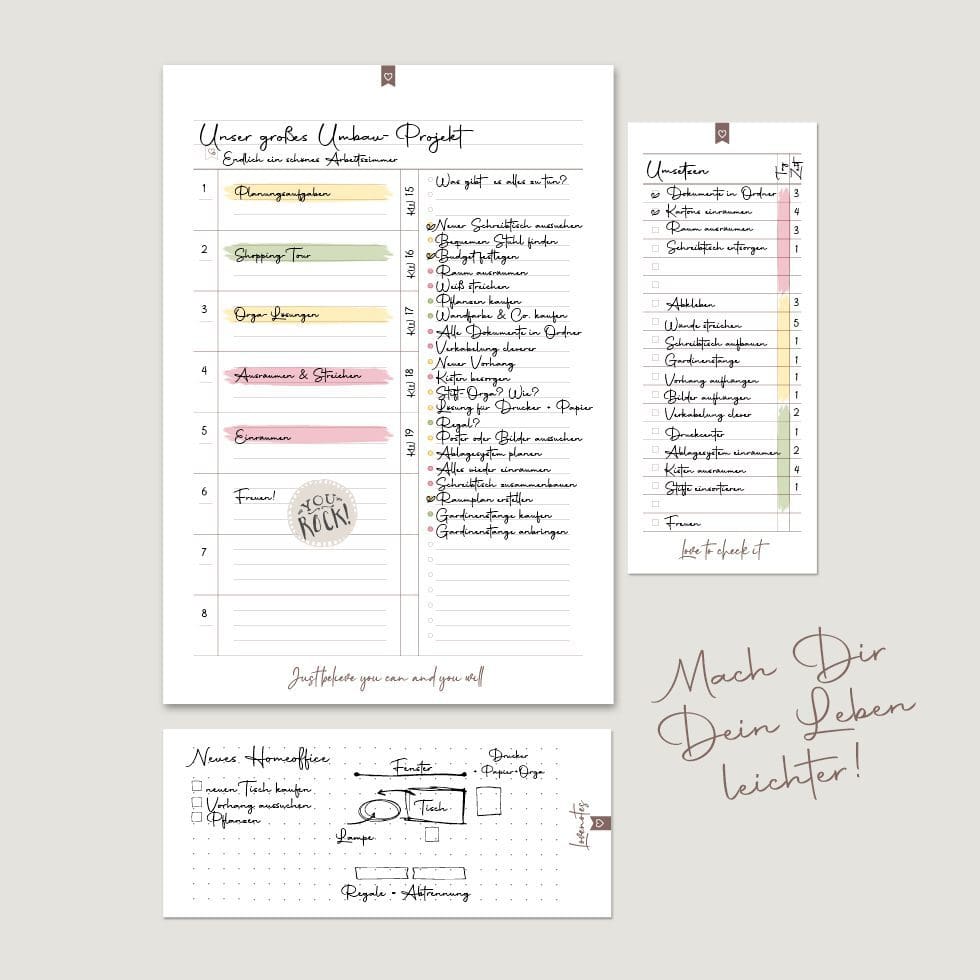 Unser großes Umbau-Projekt
Endlich ein schönes Arbeitszimmer
1
Planungsaufgaben
KW 15
2
Shopping-Tour
KW 16
3
Orga-Lösungen
KW 17
4
Ausräumen & Streichen
KW 18
5
Einräumen
KW 19
6
Freuen!
YOU ROCK!
7
8
Was gibt es alles zu tun?
Neuer Schreibtisch aussuchen
Bequemen Stuhl finden
Budget festlegen
Raum ausräumen
Weiß streichen
Pflanzen kaufen
Wandfarbe & Co. kaufen
Alle Dokumente in Ordner
Verkabelung cleverer
Neuer Vorhang
Kisten besorgen
Stift-Orga? Wie?
Lösung für Drucker + Papier
Regal?
Poster oder Bilder aussuchen
Ablagesystem planen
Alles wieder einräumen
Schreibtisch zusammenbauen
Raumplan erstellen
Gardinenstange kaufen
Gardinenstange anbringen
Just believe you can and you will
Umsetzen
Zeit
Dokumente in Ordner 3
Kartons einräumen 4
Raum ausräumen 3
Schreibtisch entsorgen 1
Abkleben 3
Wände streichen 5
Schreibtisch aufbauen 1
Gardinenstange 1
Vorhang aufhängen 1
Bilder aufhängen 1
Verkabelung clever 2
Druckcenter 1
Ablagesystem einräumen 2
Kisten ausräumen 4
Stifte einsortieren 1
Freuen
Love to check it
Neues Homeoffice
neuen Tisch kaufen
Vorhang aussuchen
Pflanzen
Fenster
Drucker
+ Papier+Orga
Tisch
Lampe
Regale = Abtrennung
Lovenotes
Mach Dir
Dein Leben
leichter!